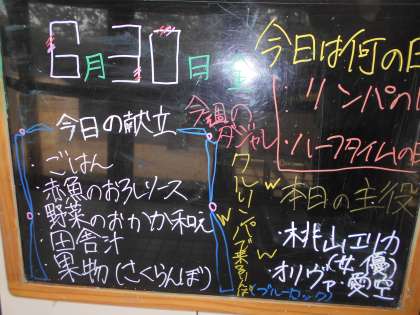 6月30日 土
今日の献立
・ごはん
・赤魚のおろしソース
・野菜のおかか和え
・田舎汁
・果物(さくらんぼ)
今週の
ダジャレ
タルリンパで来るりんぱ
(ブルーセック)
今日は何の日
・リンパの
・ハーフタイムの日
本日の主役
・桃山エリカ
(女優)
・オリヴァ・愛空